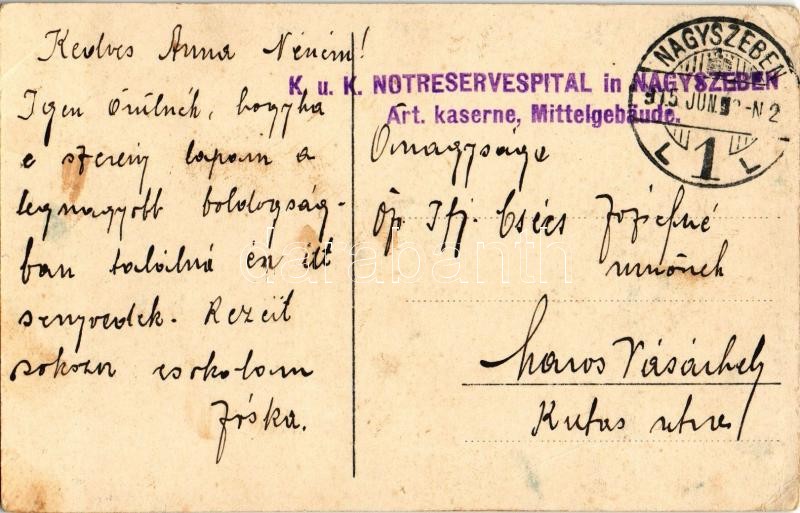 Kedves Anna Néném!
Igen örülnék, hogyha
e szerény lapom a
legnagyobb boldogság-
ban találná én itt
senyvedek. Kezeit
sokszor csokolom
Jóska.
K. u. K. NOTRESERVESPITAL in NAGYSZEBEN
Art. kaserne, Mittelgebäude.
NAGYSZEBEN
915 JUN
1
L L
Őnagysága
Ifj. Csécs Józsefné
urnőnek
Maros Vásárhely
Kutas utca
darabanth